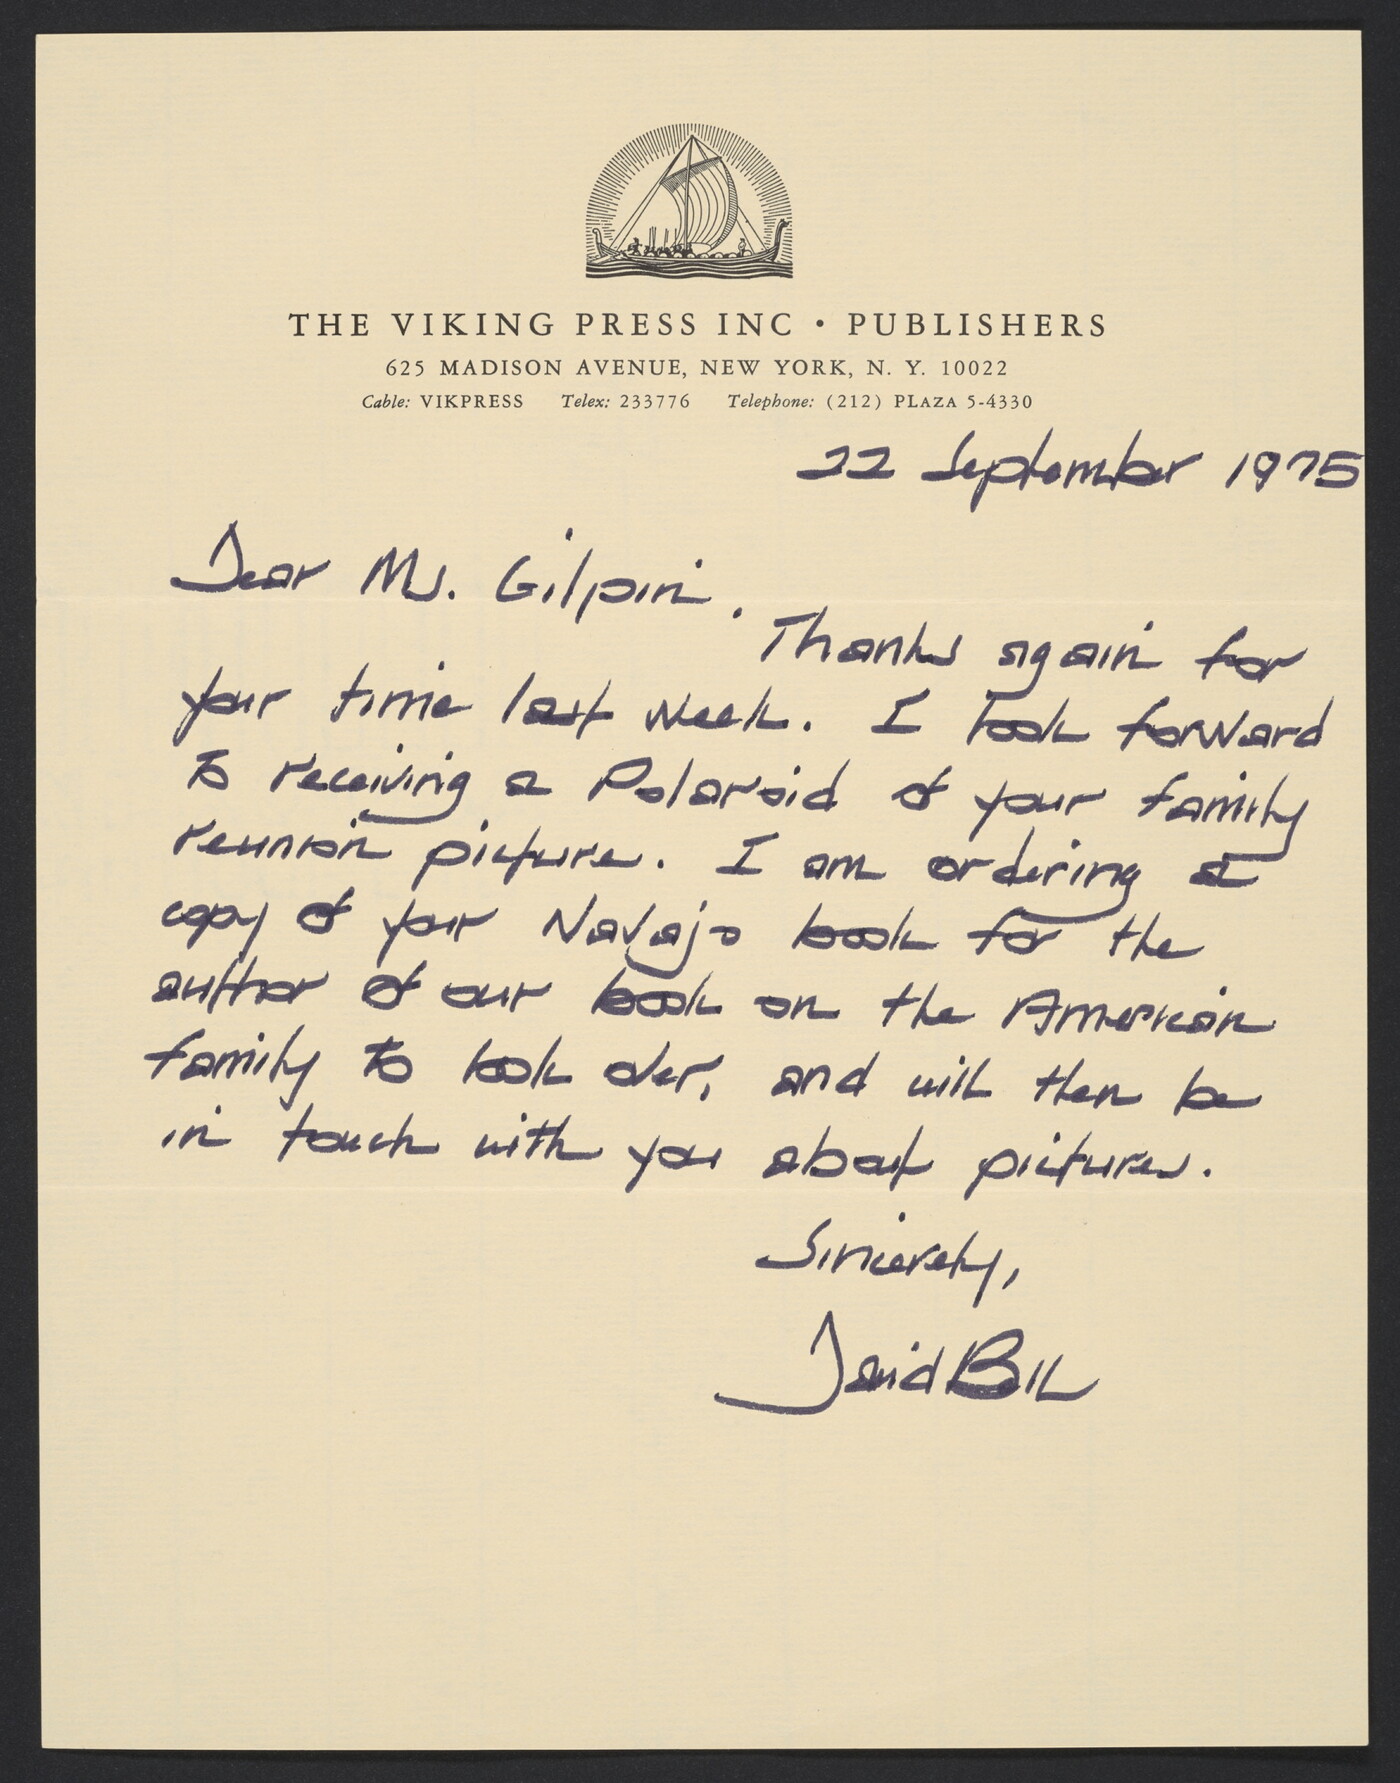 THE VIKING PRESS INC • PUBLISHERS
625 MADISON AVENUE, NEW YORK, N. Y. 10022
Cable: VIKPRESS Telex: 233776 Telephone: (212) PLAZA 5-4330
22 September 1975
Dear Ms. Gilpin.
Thanks again for
your time last week. I look forward
to receiving a Polaroid of your family
reunion picture. I am ordering a
copy of your Navajo book for the
author of our book on the American
family to look over, and will then be
in touch with you about pictures.
Sincerely,
David Bell